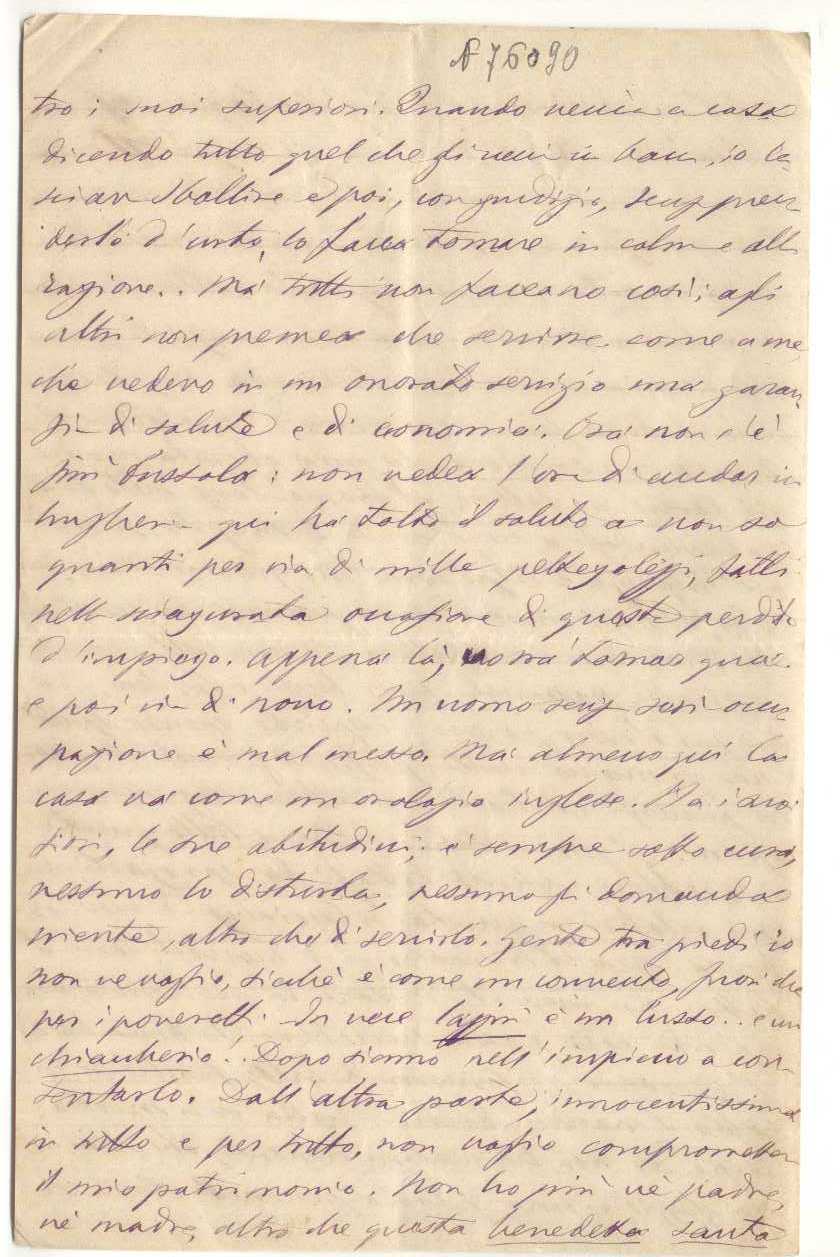 A 76090
tro i suoi superiori. Quando venia a casa
dicendo tutto quel che gli veni in bocc, io la-
sciav sbollire e poi, con giudizi, senz pren-
derlo d'urto, lo facea tornare in calm e all
ragione.. Ma tutti non faceano così; agli
altri non premea che servirse. come a me,
che vedevo in un onorato servizio una garan-
zi di salute e di economia. Ora non c'è
più bussola: non vedea l'ora di andar in
Ungheri qui ha tolto il saluto a non so
quanti per via di mille pettegolezzi, fatti
nell sciagurata occasione di questa perdita
d'impiego. Appena là, vorrà tornar qua.
e poi vi di novo. Un uomo senz seri occu-
pazione è mal messo. Ma almeno qui la
casa va come un orologio inglese. Ha i suoi
fiori, le sue abitudini, è sempre sotto cura,
nessuno lo disturba, nessuno gli domanda
niente, altro che di servirlo. Gente tra piedi io
non ne voglio, sicchè è come un convento, fuori che
per i poverett. In vece laggiù è un lusso.. e un
! Dopo siamo nell'impicio a con-
tentarlo. Dall'altra parte, innocentissima
in tutto e per tutto, non voglio compromettere
il mio patrimonio. Non ho più nè padre,
nè madre, altro che questa benedetta santa